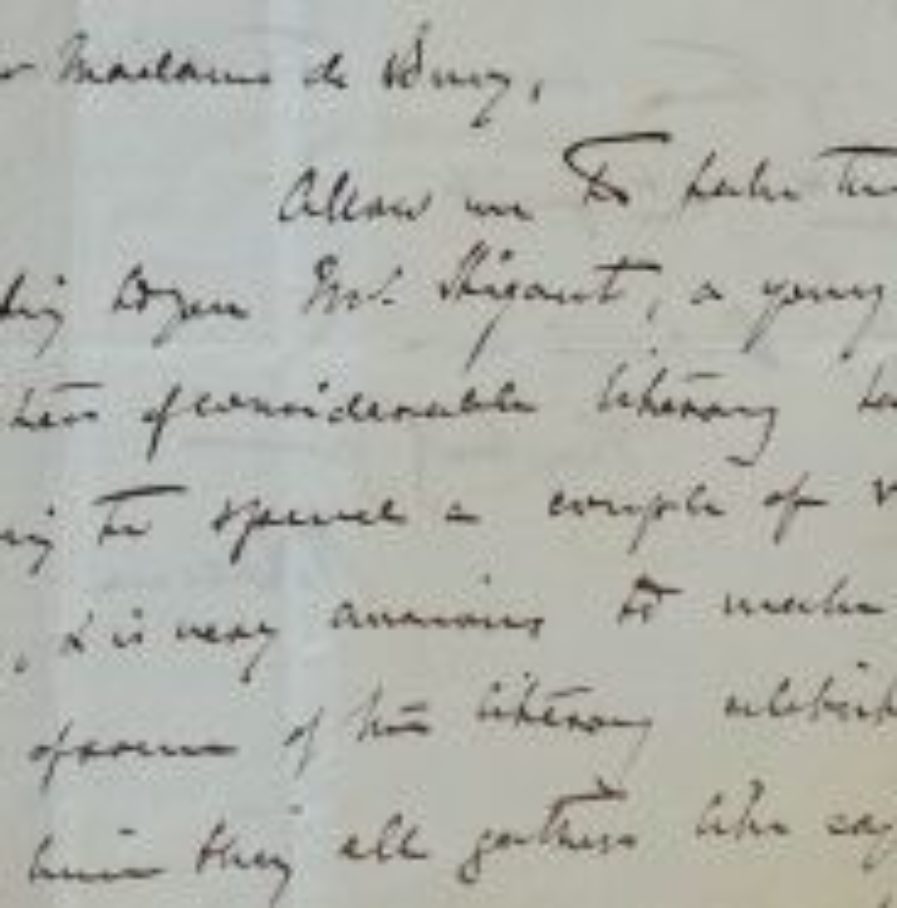 Madame de Bury,
Allow me to take the
Mr. Stigant, a young
of considerable literary
to spend a couple of
, & is very anxious to make
of some of the literary celebrit
him they all gather like